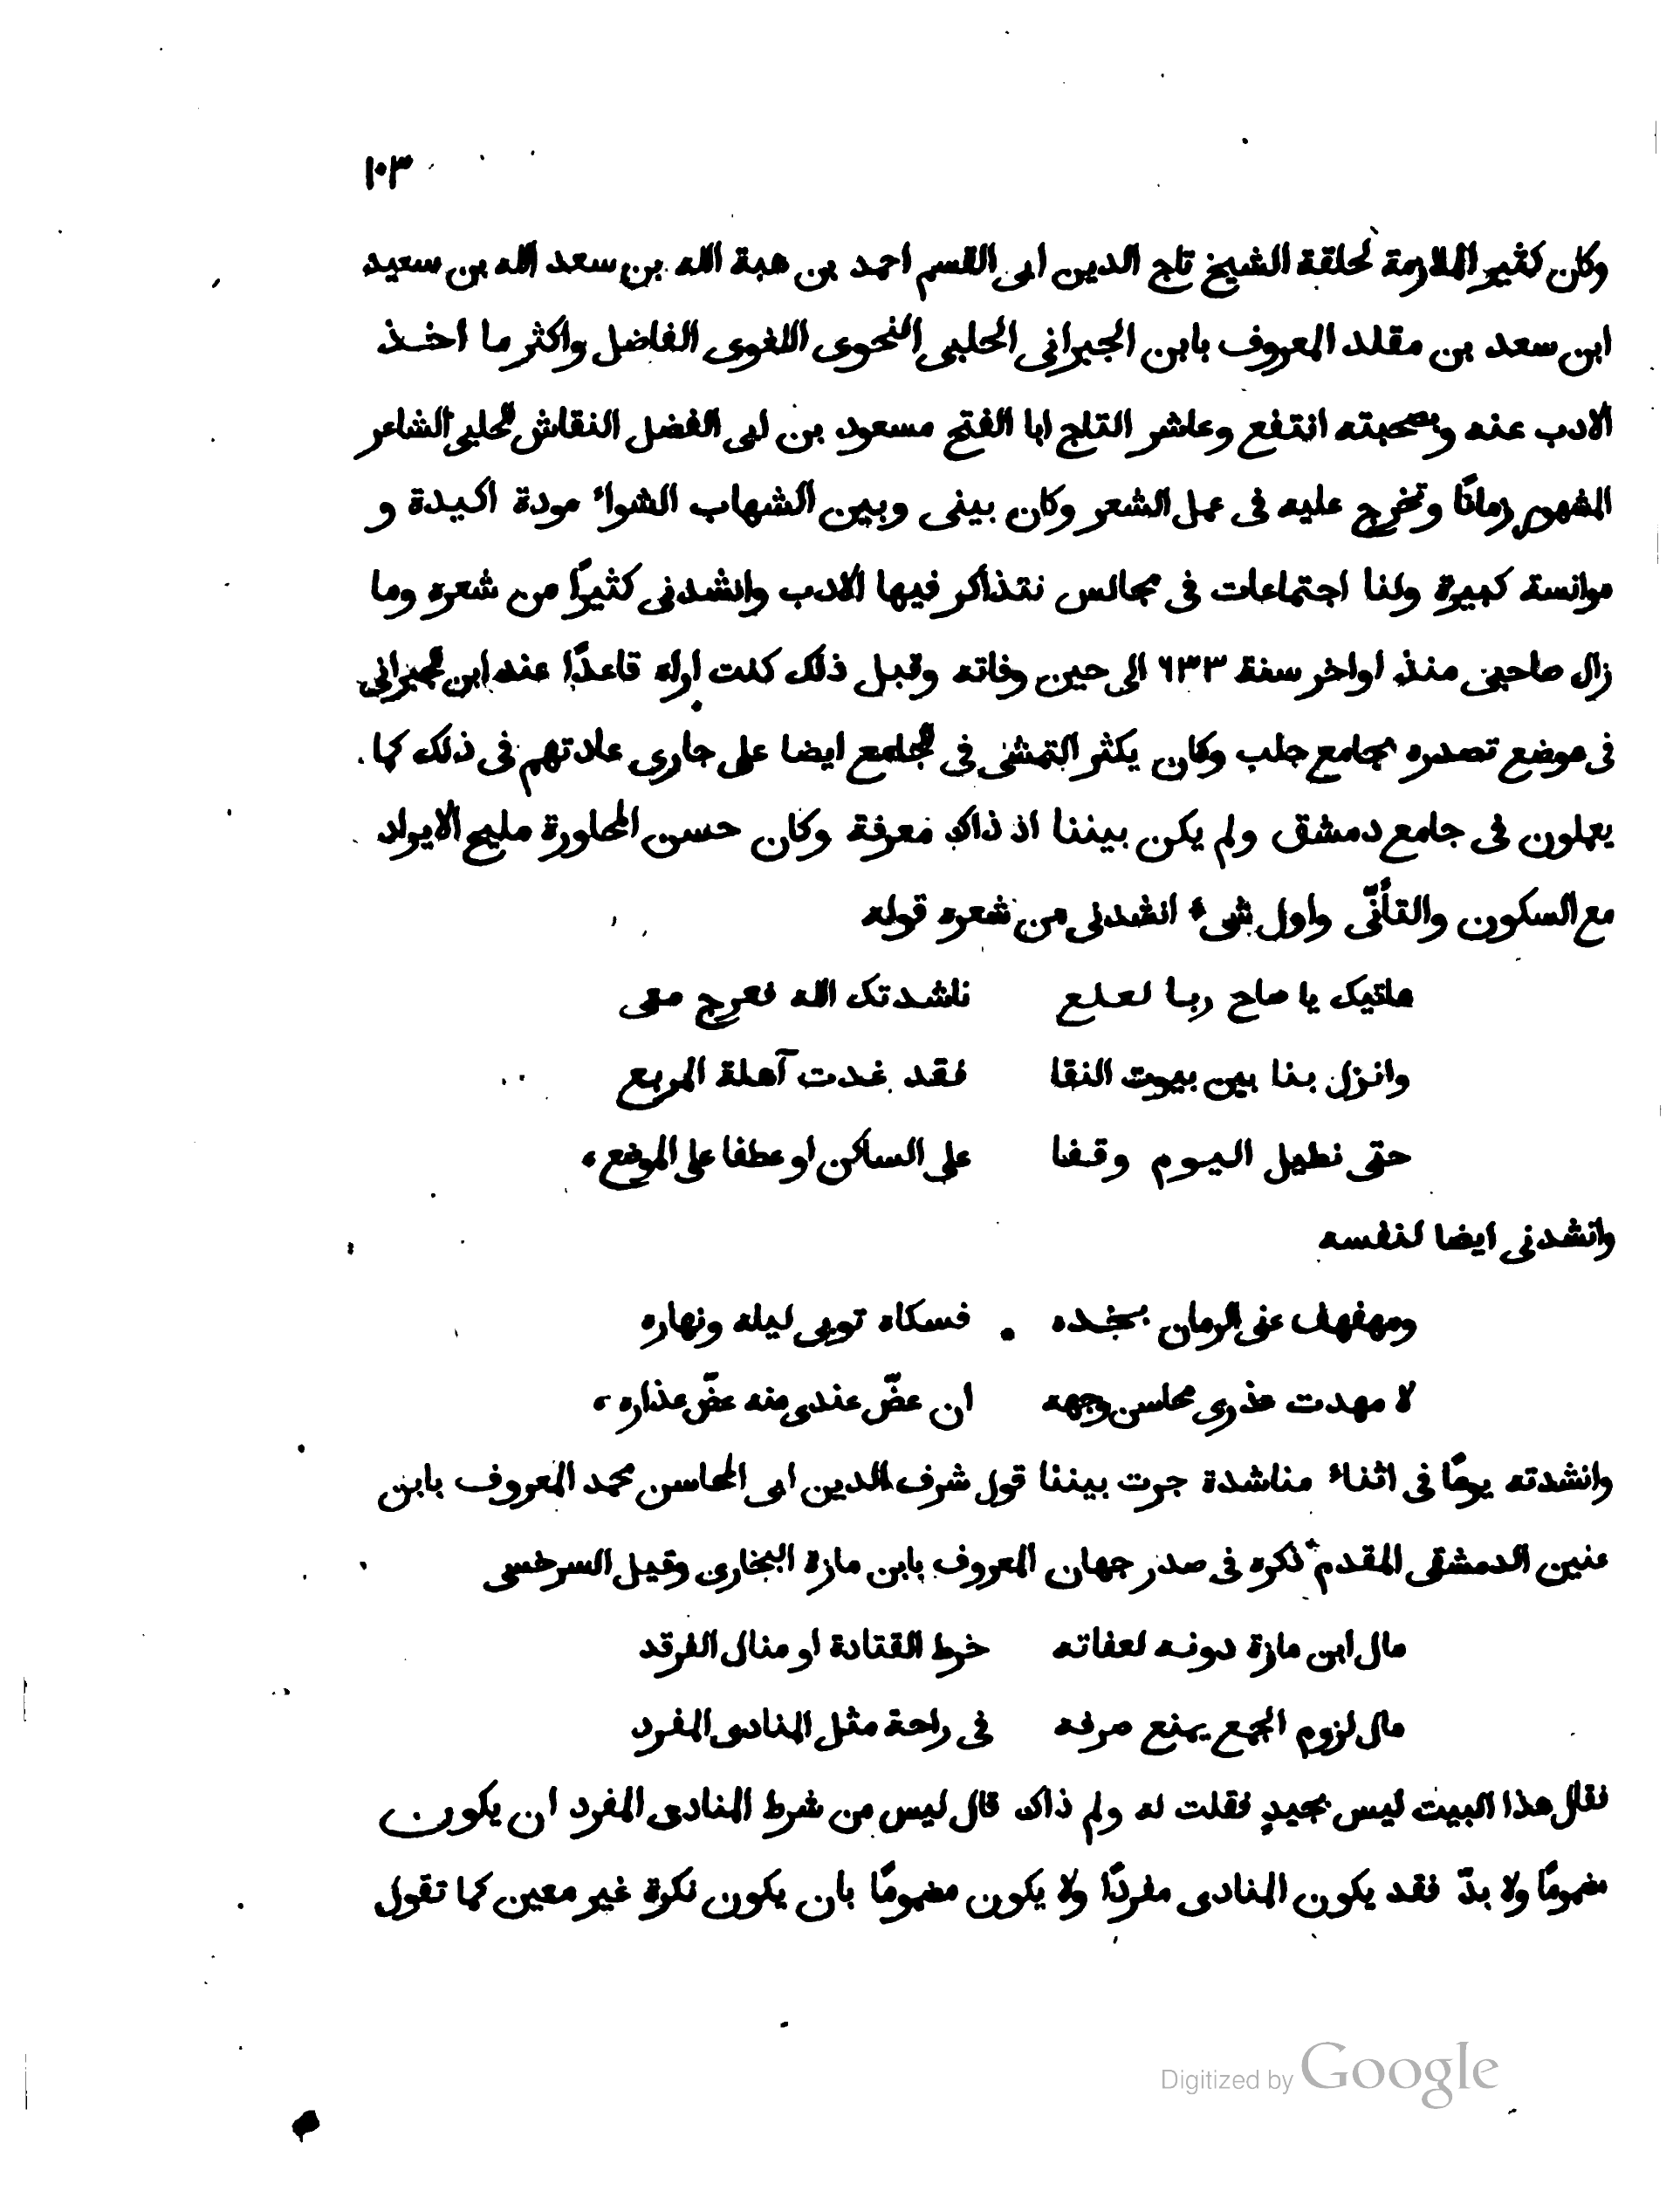 ١٠٣
وكان كثير الملازمة لحلقة الشيخ تاج الدين ابى القسم احمد بن هبة الله بن سعد الله بن سعيد
ابن سعد بن مقلد المعروف بابن الجبرانى الحلبى النحوى اللغوى الفاضل واكثر ما اخذ
الادب عنه وبصحبته انتفع وعاشر التاج ابا الفتح مسعود بن ابى الفضل النقاش الحلبى الشاعر
المشهور زمانًا وتخرج عليه فى عمل الشعر وكان بينى وبين الشهاب الشواء مودة اكيدة و
موانسة كبيرة ولنا اجتماعات فى مجالس نتذاكر فيها الادب وانشدنى كثيرًا من شعره وما
زال صاحبى منذ اواخر سنة ٦٣٣ الى حين وفاته وقبل ذلك كنت اراه قاعدًا عند ابن الجبرانى
فى موضع تصدره بجامع حلب وكان يكثر التمشى فى الجامع ايضا على جارى عادتهم فى ذلك كما
يعملون فى جامع دمشق ولم يكن بيننا اذ ذاك معرفة وكان حسن المحاورة مليح الايراد
مع السكون والتأنّى واول شىء انشدنى من شعره قوله
هاتيك يا صاح ربا لعلع ناشدتك الله فعرج معى
وانزل بنا بين بيوت النقا فقد غدت آهلة المربع
حتى نطيل اليوم وقفا على الساكن او عطفا على الموضع،
وانشدنى ايضا لنفسه
ومهفهف عنى الزمان بخده فسكاه توبى ليله ونهاره
لا مهدت عذرى محاسن وجهه ان غضّ عندى منه غضّ عذاره،
وانشدته يومًا فى اثناء مناشدة جرت بيننا قول شرف الدين ابى المحاسن محمد المعروف بابن
عنين الدمشقى المقدم ذكره فى صدر جهان المعروف بابن مازة البخارى وقيل السرخسى
مال ابن مازة دونه لعفاته خرط القتادة او منال الفرقد
مال لزوم الجمع يمنع صرفه فى راحة مثل المنادى المفرد
فقال هذا البيت ليس بجيدٍ فقلت له ولم ذاك قال ليس من شرط المنادى المفرد ان يكون
مضمومًا ولا بدّ فقد يكون المنادى مفردًا ولا يكون مضمومًا بان يكون نكرة غير معين كما تقول
Digitized by Google